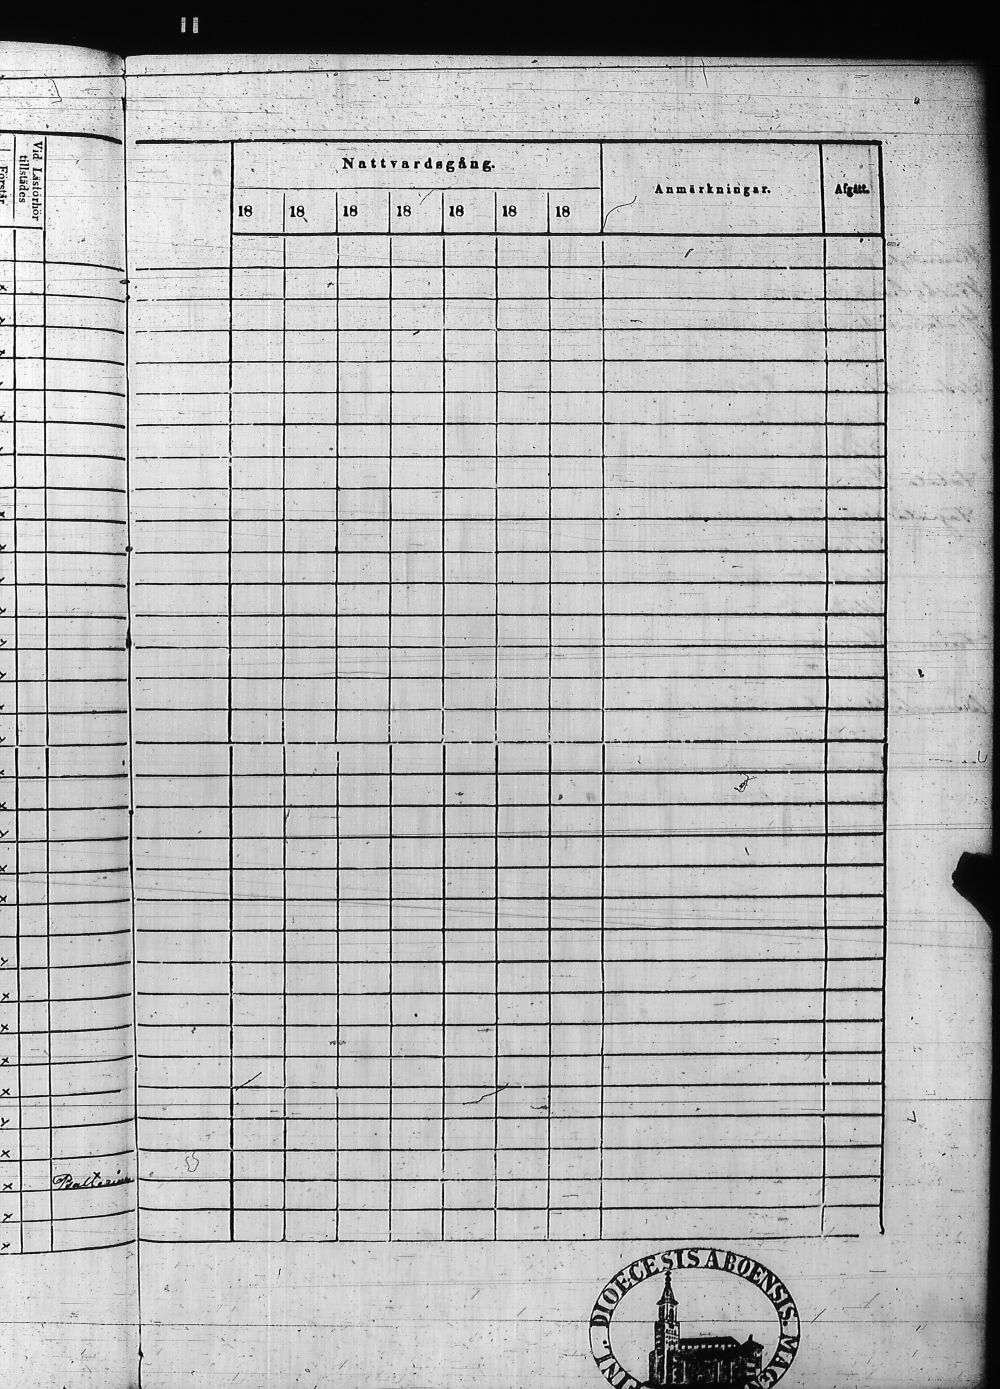 Vid Läsförhör
tillstädes
Förstår
Nattvardsgång.
Anmärkningar.
Afgått.
18 18 18 18 18 18 18
x
x
x
x
x
x
x
x
DIOECESIS ABOENSIS. MAG
FINL.